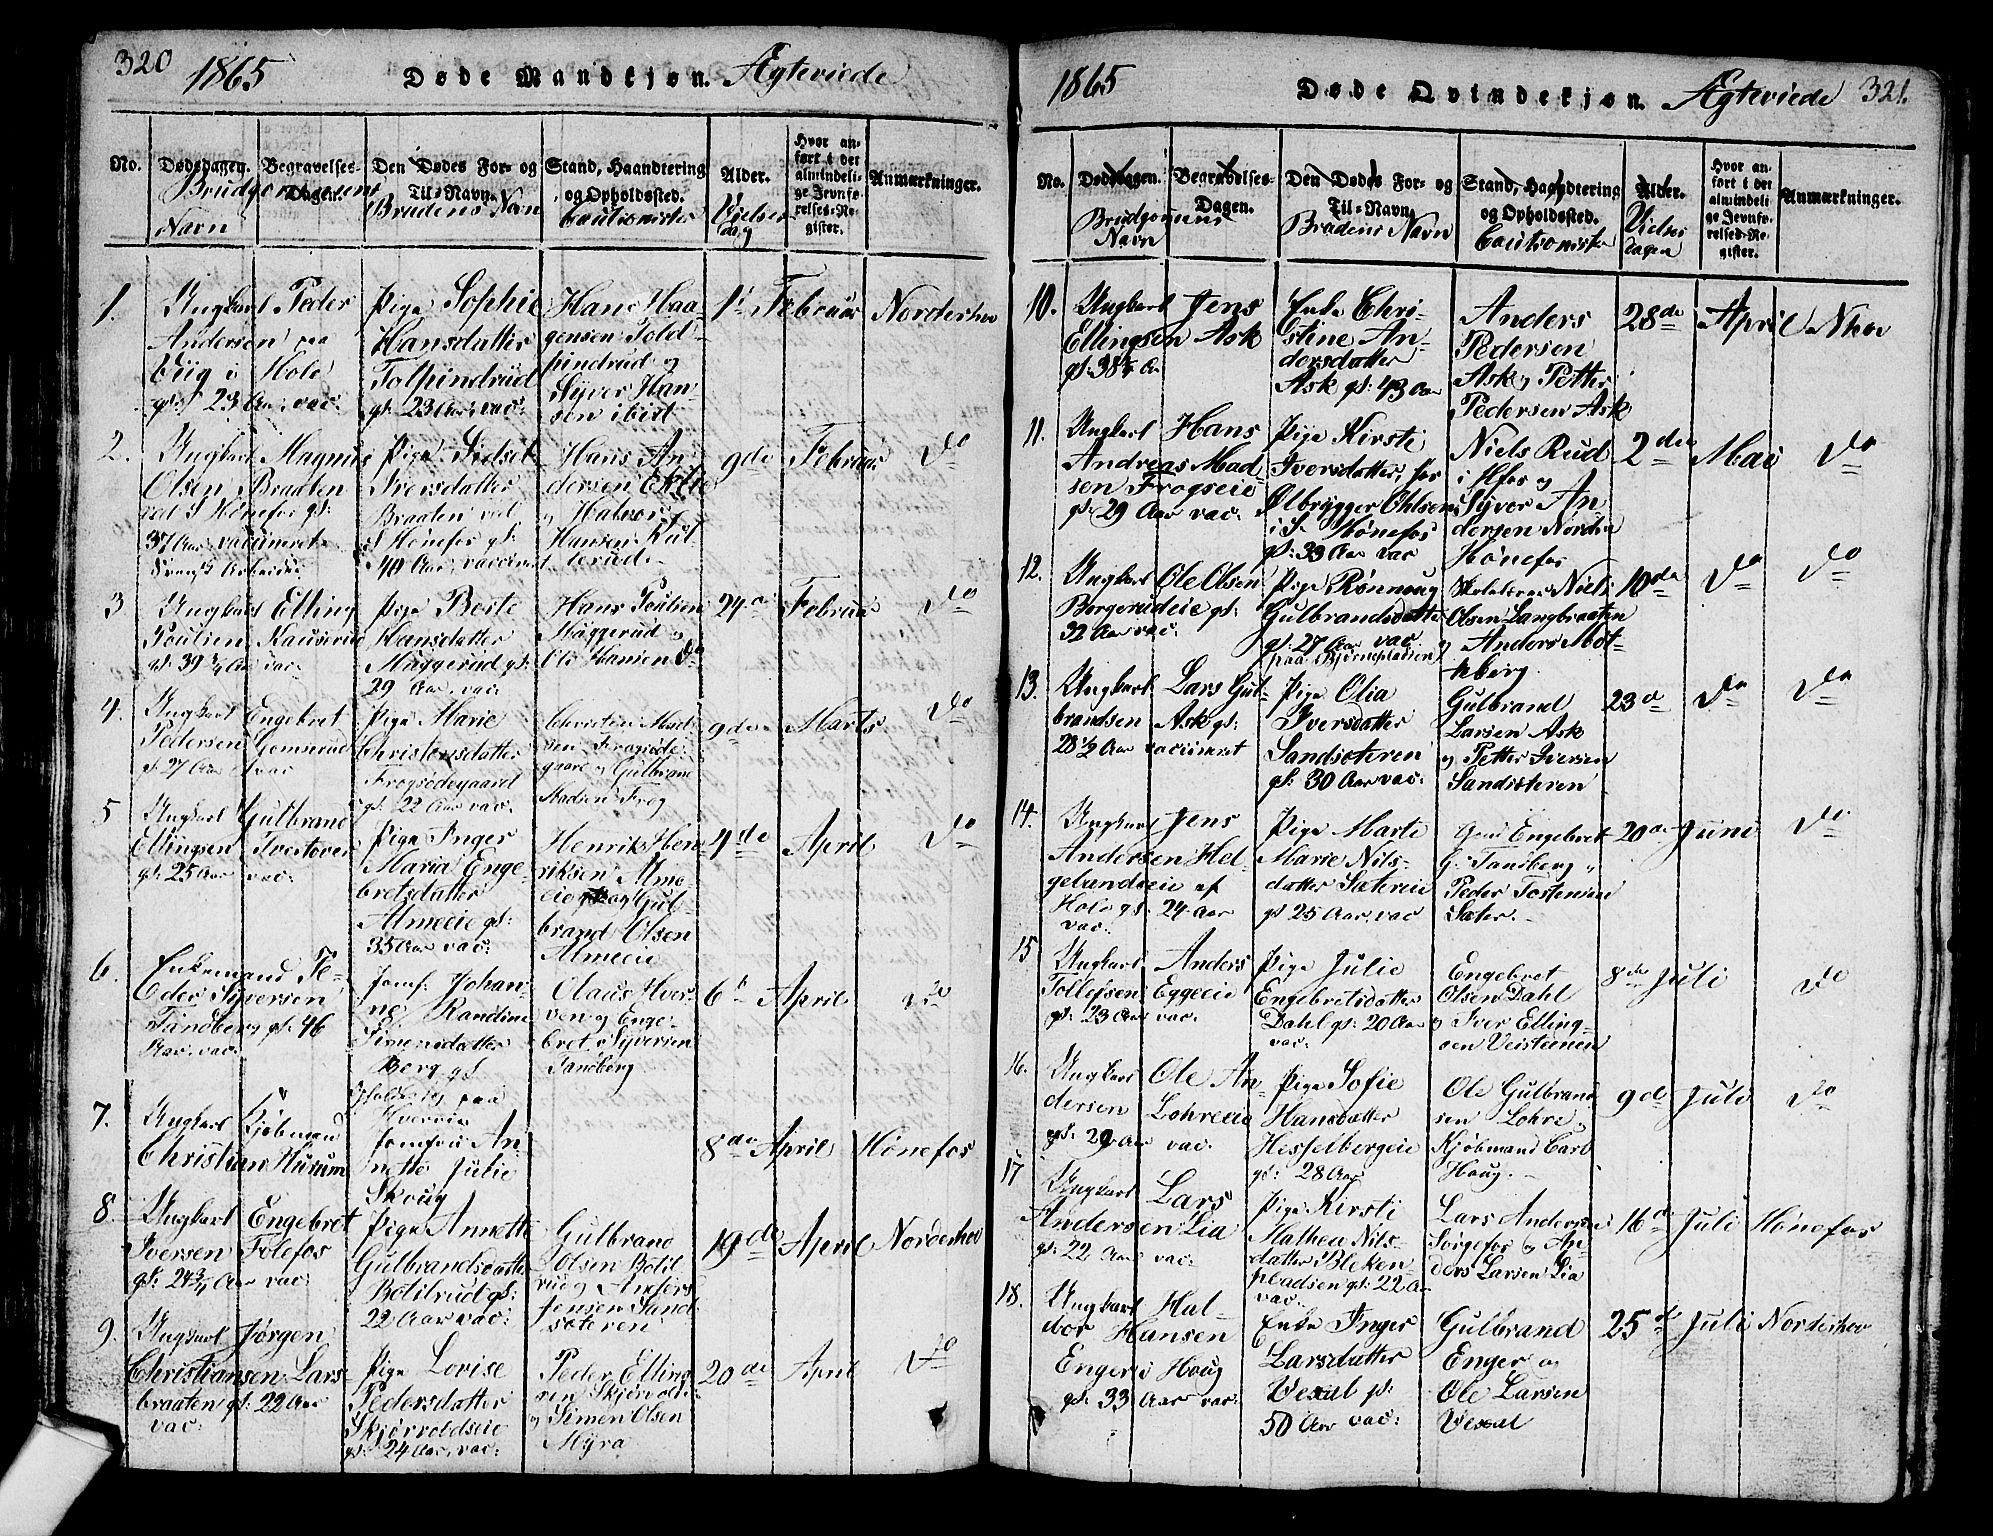 320
1865
Døde Mandkjøn. Ægteviede
No.
Dødsdagen.
Brudgommens
Navn
Begravelses-
Dagen.
Den Dødes For- og
Til-Navn.
Brudens Navn
Stand, Haandtering
og Opholdssted.
Cautionister
Alder.
Vielses
dag
Hvor an-
ført i det
almindeli-
ge Jevnfø-
relses-Re-
gister.
Anmærkninger.
1.
Ungkarl Peder
Andersen paa
Viig i Hole
gl: 23 Aar, vac.
Pige Sophie
Hansdatter
Tolpindrud
gl: 23 Aar, vac:
Hans Haa-
gensen Told-
pindrud og
Syver Han-
sen ibid
1ste Februar
Norderhov
2.
Ungkarl Magnus
Olsen Braaten
ved S Hønefos gl:
37 Aar, vaccineret
Svensk Arbeider
Pige Sidsel
Iversdatter
Braaten ved
S Hønefos gl:
40 Aar, vaccineret
Hans An-
dersen Eklie
og Halvor
Hansen Kul-
terud
9de Februar
Do
3
Ungkarl Elling
Poulsen Kauserud
gl: 39 1/4 Aar vac:
Pige Berte
Hansdatter
Muggerud gl:
29 Aar, vac:
Hans Poulsen
Muggerud og
Ole Hansen Do
24de Februar
Do
4.
Ungkarl Engebret
Pedersen Gomnrud
gl: 27 Aar vac
Pige Marie
Christensdatter
Frogsødegaard
gl: 22 Aar, vac:
Christen Mad-
sen Frogsøde-
gaard og Gulbrand
Madsen Frog
9de Marts
Do
5
Ungkarl Gulbrand
Ellingsen Tvestover
gl: 25 Aar vac:
Pige Inger
Maria Enge-
bretsdatter
Almeeie gl:
35 Aar vac:
Henrik Hen-
riksen Alme-
eie og Gul-
brand Olsen
Almeeie
4de April
Do
6.
Enkemand Pe-
der Syversen
Tandberg gl: 46
Aar, vac:
Jomf. Johan-
ne Randine
Simensdatter
Berg gl
Holder sig paa
Hverven
Olaus Hver-
ven og Enge-
bret Syversen
Tandberg
6te April
Do
7.
Ungkarl Kjøbmand
Christian Hurum
Jomfru An-
nette Julie
Skoug
8de April Hønefos
8.
Ungkarl Engebret
Iversen Folefos
gl: 24 3/4 Aar vac:
Pige Annette
Gulbrandsdatter
Botilrud gl:
22 Aar vac:
Gulbrand
Olsen Botil-
rud og Anders
Jensen Sand-
søteren
19de April Norderhov
9.
Ungkarl Jørgen
Christiansen Lars-
braaten gl: 22 Aar
vac:
Pige Lovise
Pedersdatter
Skjørvoldseie
gl: 24 Aar, vac:
Peder Elling-
sen Skjørvold
og Simen Olsen
Myra
20de April
Do
1865
Døde Qvindekjøn. Ægteviede
321.
No.
Dødsdagen.
Brudgommens
Navn
Begravelses-
Dagen.
Den Dødes For- og
Til-Navn.
Brudens Navn
Stand, Haandtering
og Opholdssted.
Cautionister
Alder.
Vielses
dagen
Hvor an-
ført i det
almindeli-
ge Jevnfø-
relses-Re-
gister.
Anmærkninger.
10.
Ungkarl Jens
Ellingsen Ask
gl: 38 1/2 Aar
Enke Chri-
stine An-
dersdatter
Ask gl: 43 Aar
Anders
Pedersen
Ask og Petter
Pedersen Ask
28de April Nhov
11.
Ungkarl Hans
Andreas Mad-
sen Frogseie
gl: 29 Aar vac:
Pige Kirsti
Iversdatter, hos
Ølbrygger Ohlsen
i S. Hønefos
gl: 33 Aar vac
Niels Rud
i Hfos og
Syver An-
dersen Nordre
Hønefos
2den Mai
Do
12.
Ungkarl Ole Olsen
Borgerudeie gl:
32 Aar vac:
Pige Rønnoug
Gulbrandsdatter
gl: 27 Aar vac
paa Bjørnepladsen
Skolelærer Niels
Olsen Langbraaten
og Anders Mot-
kberg
10de Do
Do
13.
Ungkarl Lars Gul-
brandsen Ask gl:
28 1/2 Aar vaccineret
Pige Olia
Iversdatter
Sandsøteren
gl: 30 Aar vac:
Gulbrand
Larsen Ask
og Petter Iversen
Sandsøteren
23de Do
Do
14.
Ungkarl Jens
Andersen Hel-
gelandseie af
Hole gl: 24 Aar
vac:
Pige Marte
Marie Nils-
datter Sætreie
gl 25 Aar, vac
Engebret
G. Tandberg og
Peder Tostensen
Sæter.
20de Juni
Do
15
Ungkarl Anders
Tollefsen Eggeeie
gl: 23 Aar vac:
Pige Julie
Engebretsdatter
Dahl gl: 20 Aar
vac:
Engebret
Olsen Dahl
og Iver Elling-
sen Veisteinen
8de Juli
Do
16.
Ungkarl Ole An-
dersen Lohreeie
gl: 29 Aar vac:
Pige Sofie
Hansdatter
Hesselbergeie
gl: 28 Aar
Ole Gulbrand-
sen Lohre og
Kjøbmand Carl
Haug.
9de Juli
Do
17
Ungkarl Lars
Andersen Lia
gl: 22 Aar vac:
Pige Kirsti
Mathea Nils-
datter Bleken
pladsen gl: 22 Aar
vac:
Lars Andersen
Sørgefos og An-
ders Larsen Lia
16de Juli Hønefos
18.
Ungkarl Hal-
vor Hansen
Enger i Haug
gl: 33 Aar vac:
Enke Inger
Larsdatter
Vesul gl:
50 Aar vac:
Gulbrand
Enger og
Ole Larsen
Vesul
25de Juli Norderhov